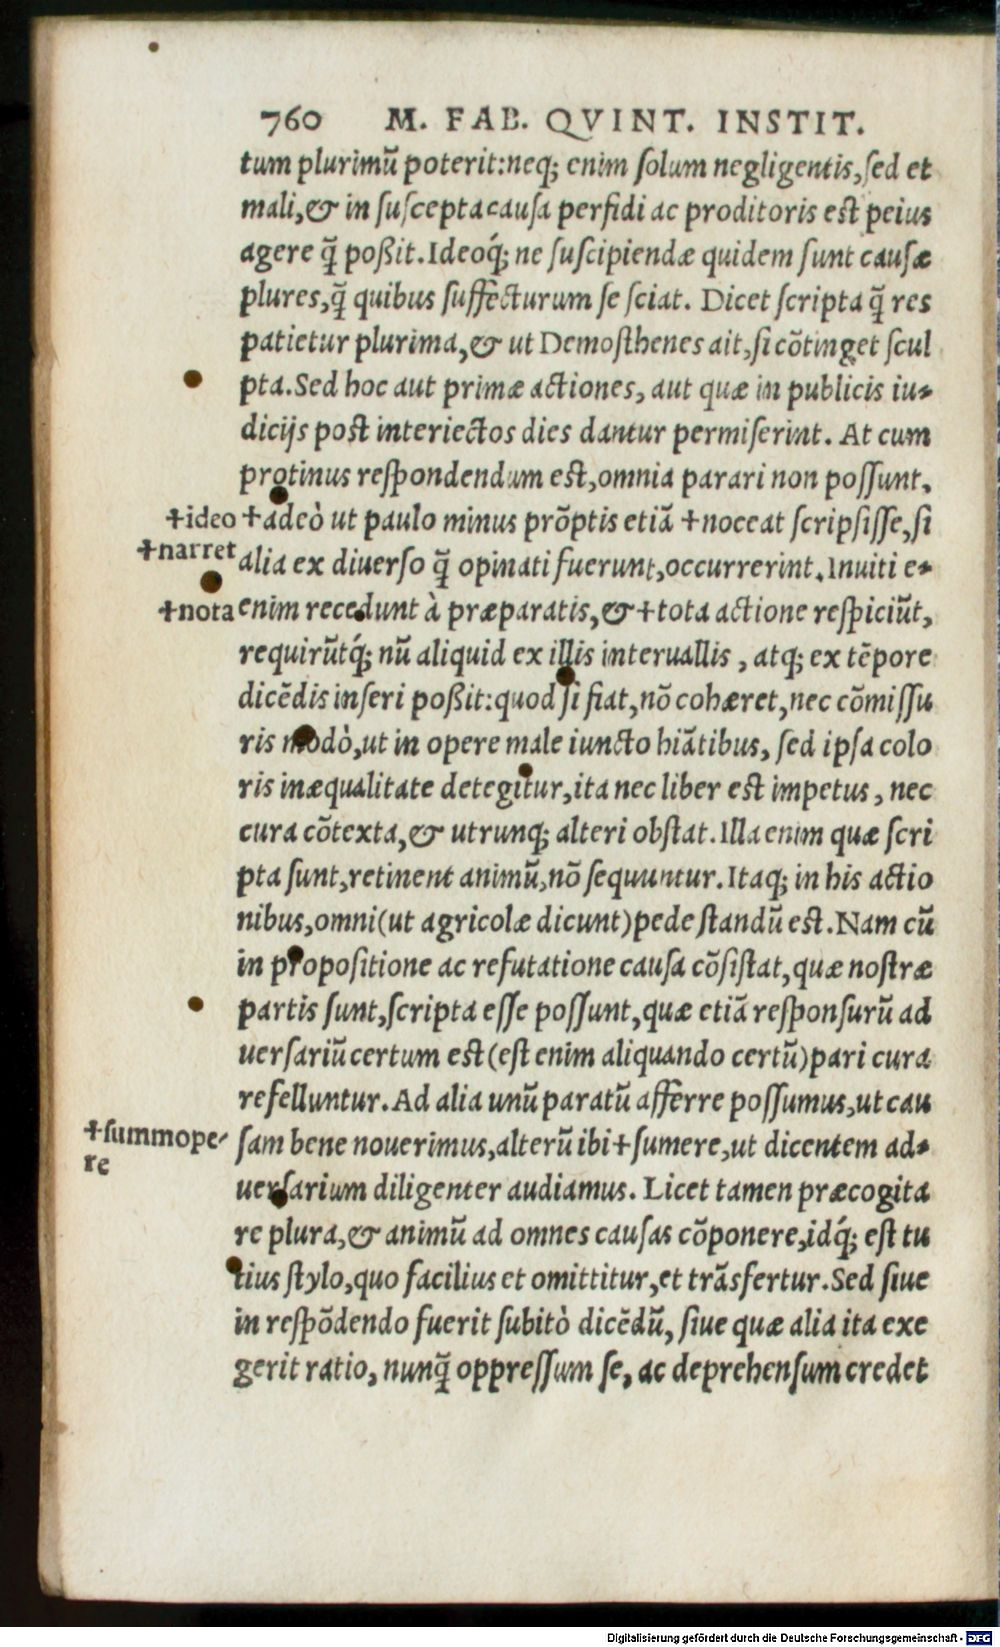 760 M. FAB. QVINT. INSTIT.
tum plurimū poterit:neq; enim ſolum negligentis,ſed et
mali,& in ſuſcepta cauſa perfidi ac proditoris est peius
agere q̄ poßit.Ideoq́; ne ſuſcipiendæ quidem ſunt cauſæ
plures,q̄ quibus ſuffecturum ſe ſciat. Dicet ſcripta q̄ res
patietur plurima,& ut Demosthenes ait,ſi cōtinget ſcul
pta.Sed hoc aut primæ actiones, aut quæ in publicis iu-
dicijs post interiectos dies dantur permiſerint. At cum
protinus reſpondendum est,omnia parari non poſſunt,
+ideo +adeò ut paulo minus prōptis etiā +noceat ſcripſiſſe,ſi
+narret alia ex diuerſo q̄ opinati fuerunt,occurrerint.Inuiti e-
+nota enim recedunt à præparatis,& +tota actione reſpiciūt,
requirūtq́; nū aliquid ex illis interuallis , atq; ex tēpore
dicēdis inſeri poßit:quod ſi fiat,nō cohæret,nec cōmiſſu
ris modò,ut in opere male iuncto hiātibus, ſed ipſa colo
ris inæqualitate detegitur,ita nec liber est impetus , nec
cura cōtexta,& utrunq; alteri obstat.Illa enim quæ ſcri
pta ſunt,retinent animū,nō ſequuntur.Itaq; in his actio
nibus,omni(ut agricolæ dicunt)pede standū est.Nam cū
in propositione ac refutatione cauſa cōſistat,quæ nostræ
partis ſunt,ſcripta eſſe poſſunt,quæ etiā reſponſurū ad
uerſariū certum est(est enim aliquando certū)pari cura
refelluntur.Ad alia unū paratū afferre poſſumus,ut cau
+ſummope-
re
ſam bene nouerimus,alterū ibi +ſumere,ut dicentem ad-
uerſarium diligenter audiamus. Licet tamen præcogita
re plura,& animū ad omnes cauſas cōponere,idq́; est tu
tius stylo,quo facilius et omittitur,et trāsfertur.Sed ſiue
in reſpōdendo fuerit ſubitò dicēdū, ſiue quæ alia ita exe
gerit ratio, nunq̄ oppreſſum ſe, ac deprehenſum credet
Digitalisierung gefördert durch die Deutsche Forschungsgemeinschaft - DFG